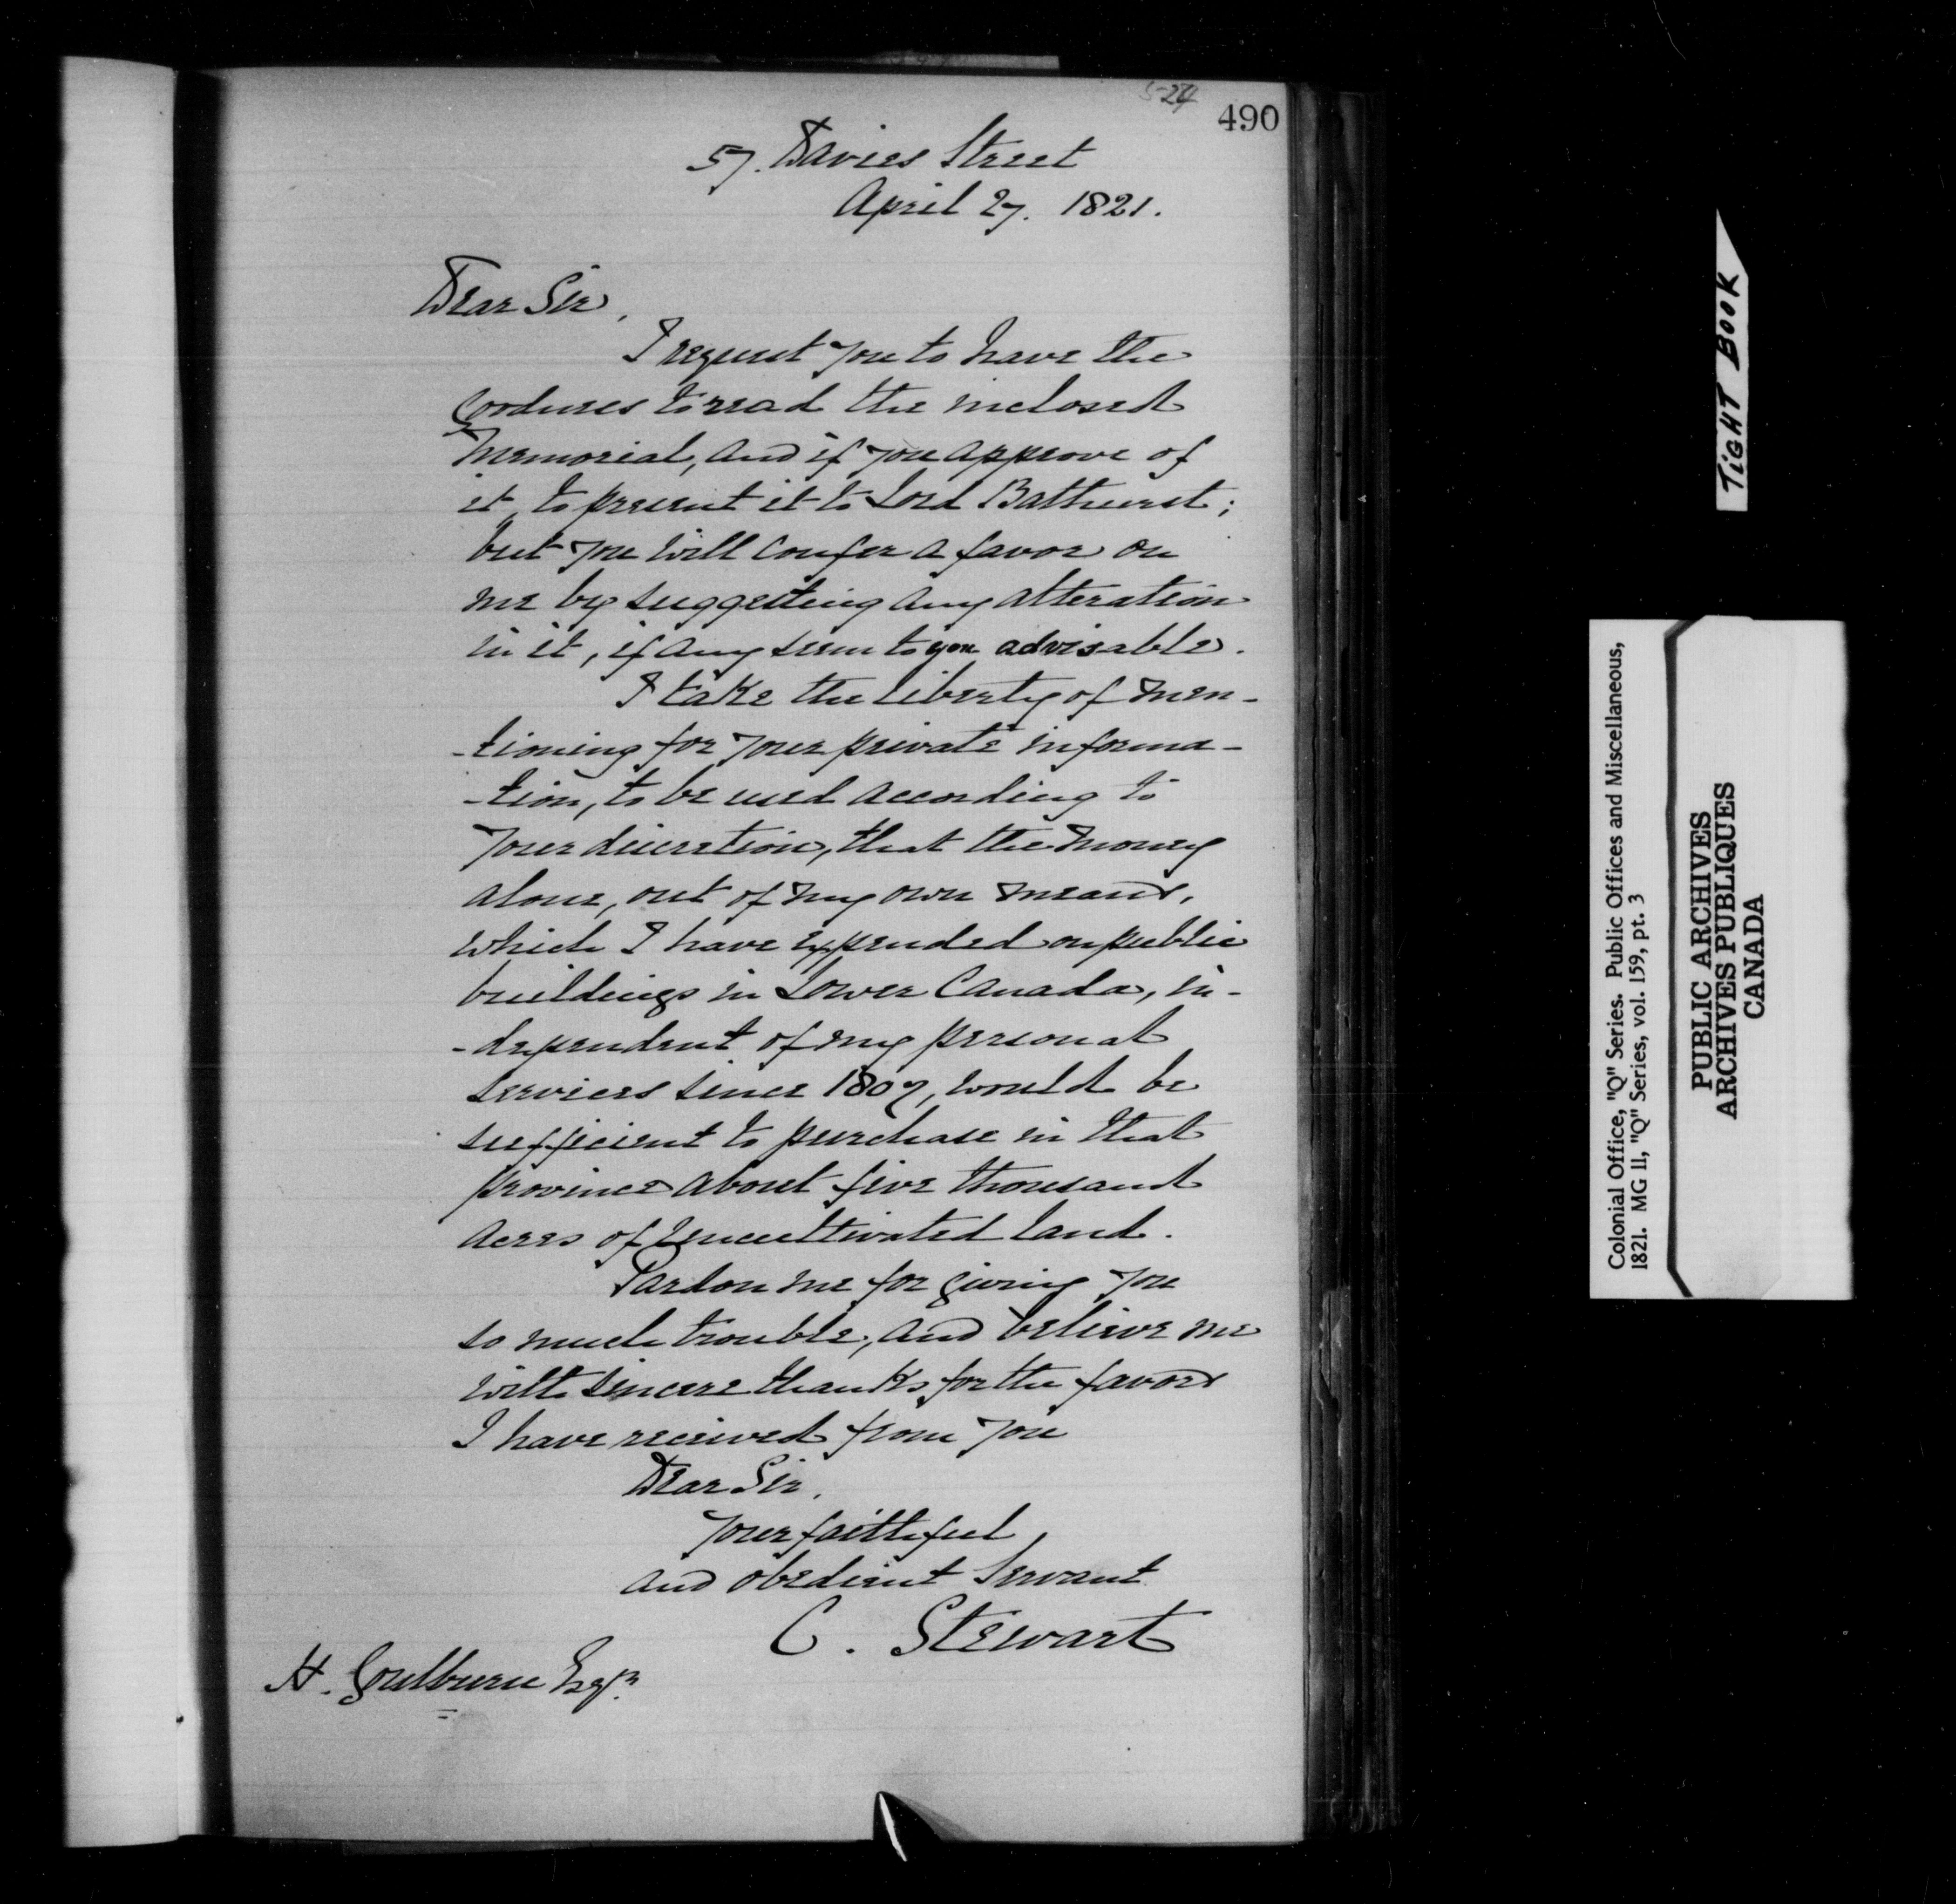 524
490
57. Davies Street
April 27. 1821.
Dear Sir,
I request you to have the
goodness to read the inclosed
Memorial, and if you approve of
it, to present it to Lord Bathurst;
but you will confer a favor on
me by suggesting any alteration
in it, if any seem to you advisable.
I take the liberty of men-
-tioning for your private informa-
-tion, to be used according to
your discretion, that the money
alone, out of my own means,
which I have expended on public
buildings in Lower Canada, in-
-dependent of my personal
services since 1807, would be
sufficient to purchase in that
province about five thousand
acres of uncultivated land.
Pardon me for giving you
so much trouble, and believe me
with sincere thanks for the favors
I have received from you
Dear Sir,
your faithful
and obedient Servant
C. Stewart
H. Goulburn Esqr.
TIGHT BOOK
Colonial Office, "Q" Series. Public Offices and Miscellaneous,
1821. MG 11, "Q" Series, vol. 159, pt. 3
PUBLIC ARCHIVES
ARCHIVES PUBLIQUES
CANADA